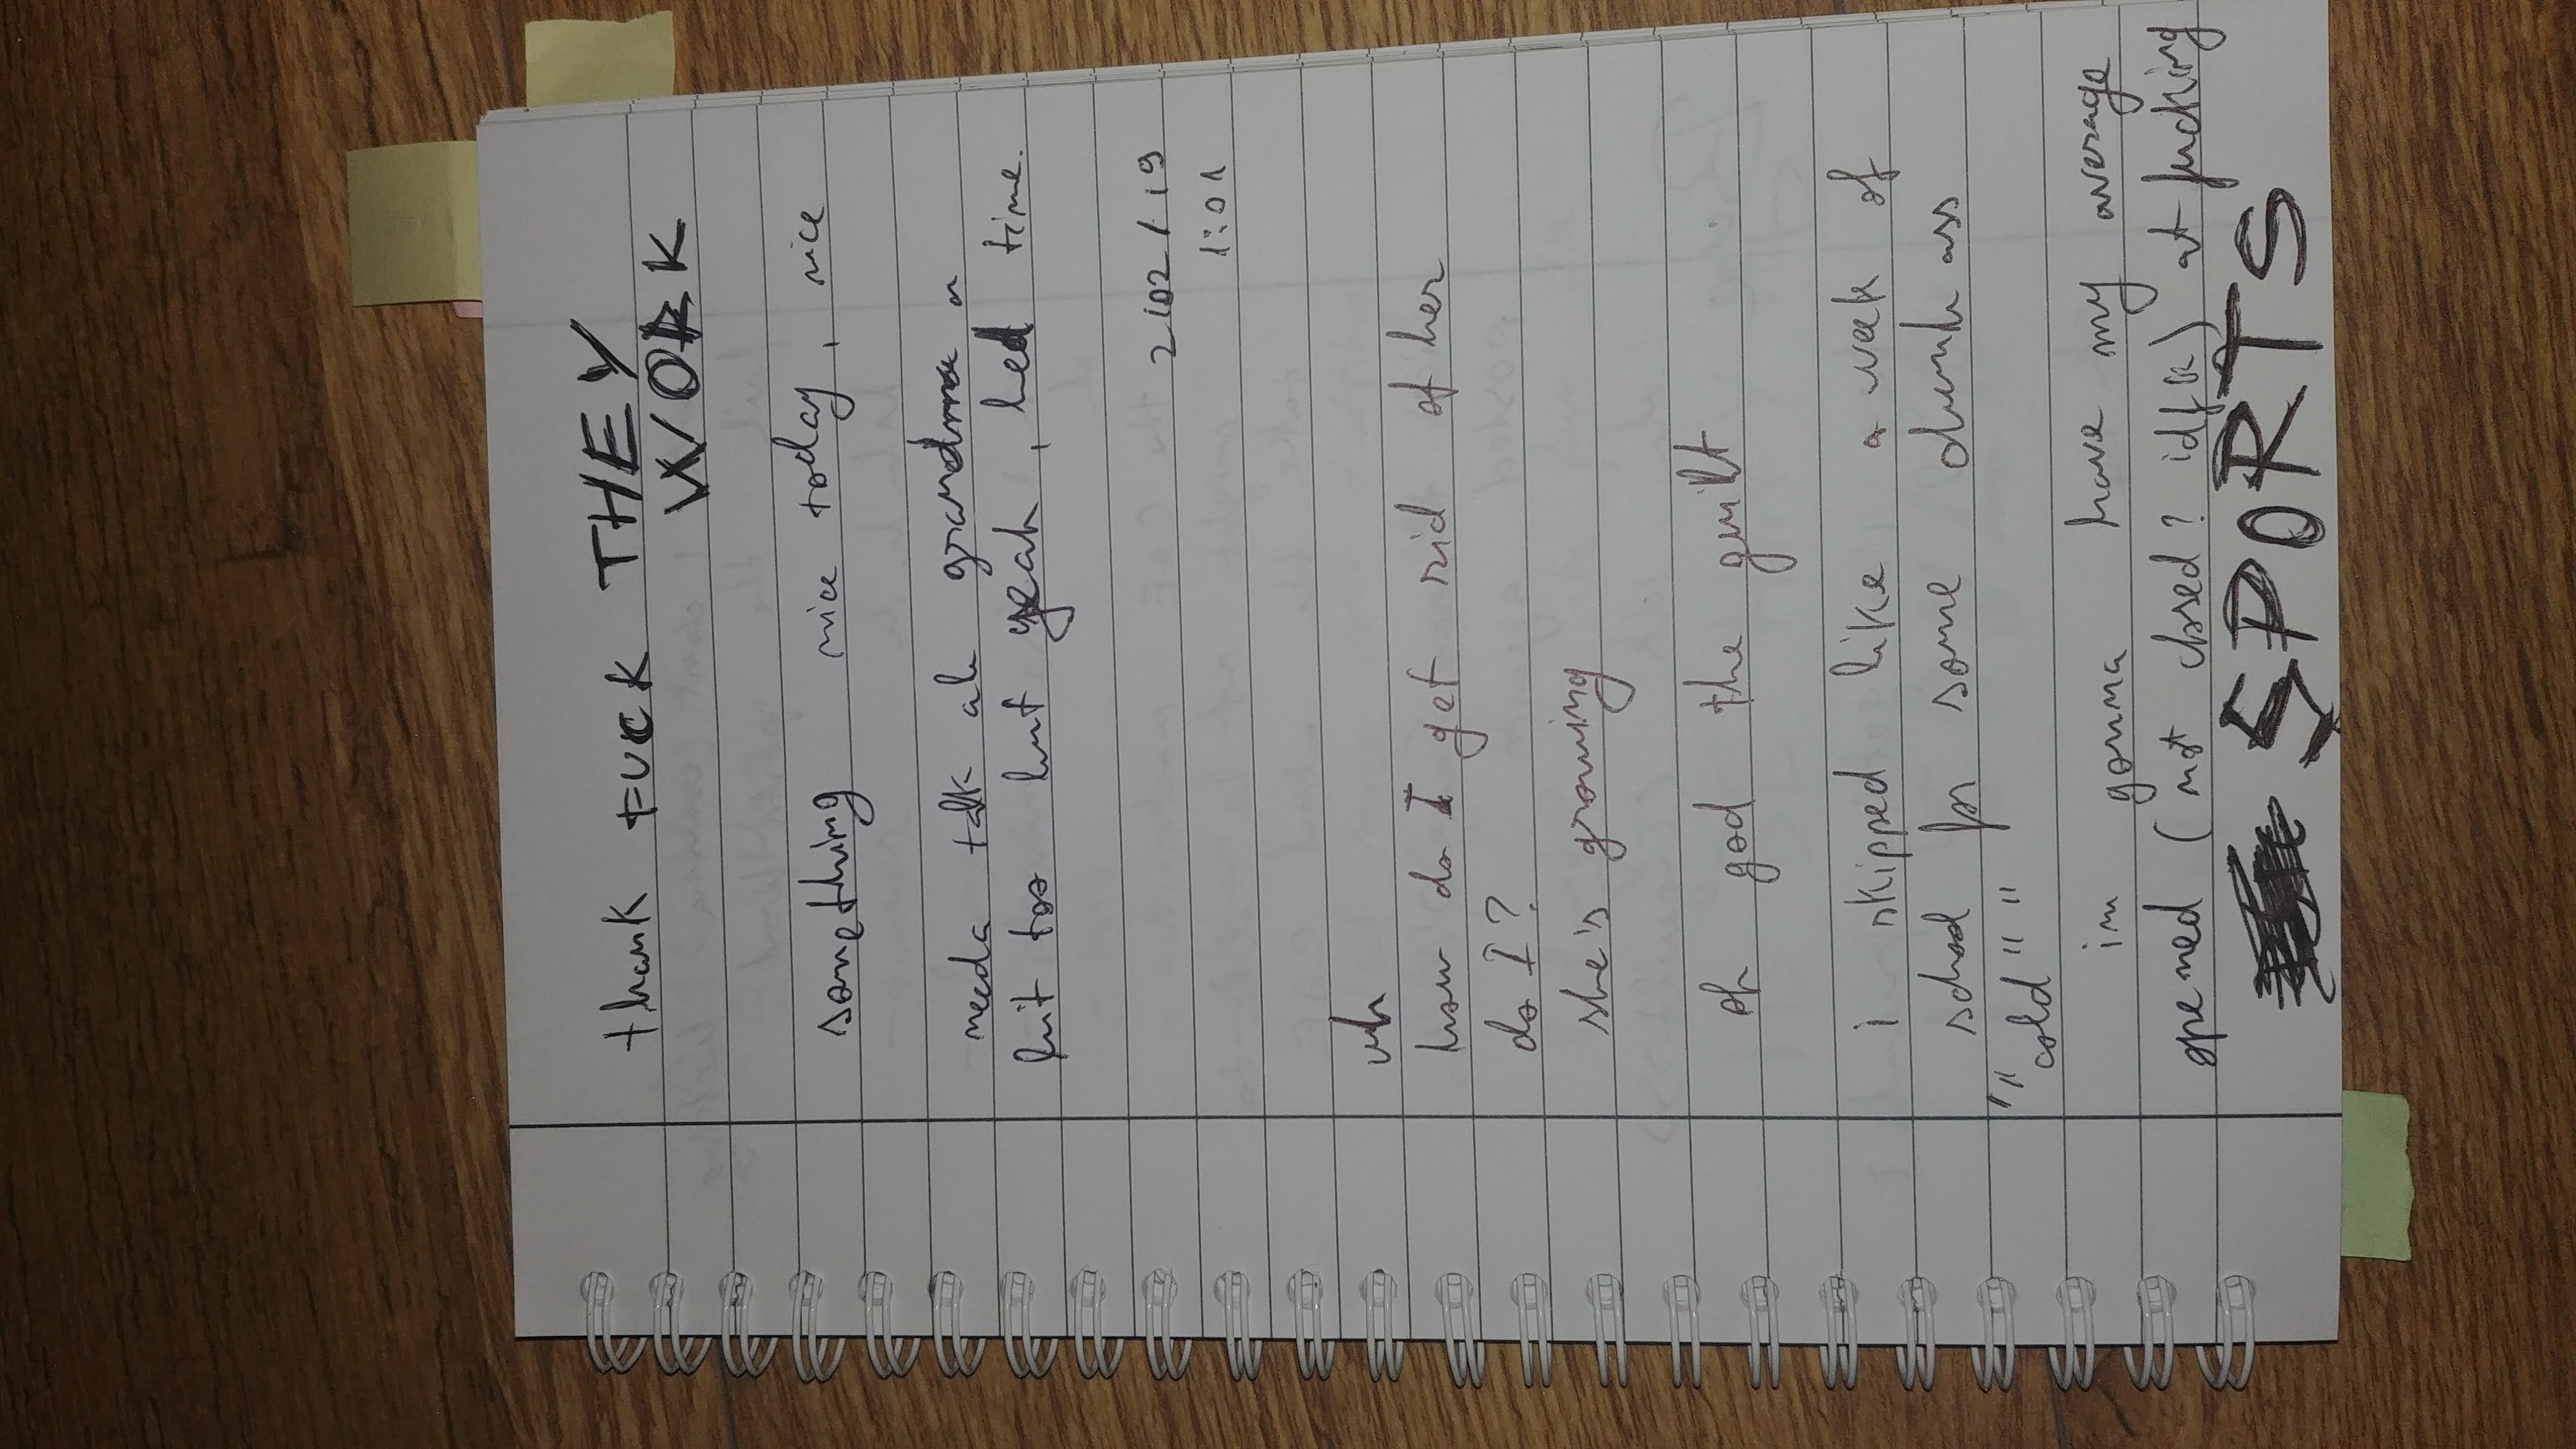 thank FUCK THEY
WORK
something nice today, nice
needa talk ab grandma a
bit too but yeah, bed time.
2/02/19
1:01
uh
how do I get rid of her
do I?
she's growing
oh god the guilt
i skipped like a week of
school for some ass
""cold""
im gonna have my average
opened (not closed? idfk) at fucking
SPORTS